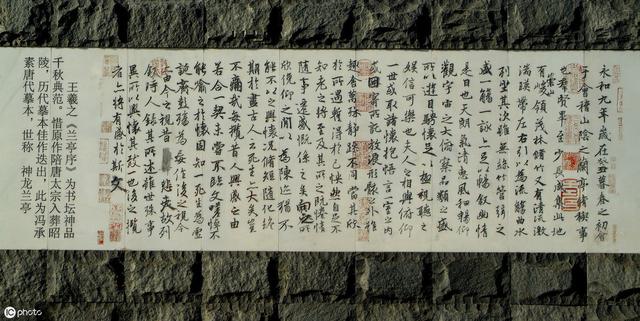 永和九年歲在癸丑暮春之初會
于會稽山陰之蘭亭脩稧事
也群賢畢至少長咸集此地
有崇山峻領茂林脩竹又有清流激
湍映帶左右引以為流觴曲水
列坐其次雖無絲竹管弦之
盛一觴一詠亦足以暢敘幽情
是日也天朗氣清惠風和暢仰
觀宇宙之大俯察品類之盛
所以遊目騁懷足以極視聽之
娛信可樂也夫人之相與俯仰
一世或取諸懷抱悟言一室之內
或因寄所託放浪形骸之外雖
趣舍萬殊靜躁不同當其欣
於所遇蹔得於己怏然自足不
知老之將至及其所之既惓情
隨事遷感慨係之矣向之所
欣俛仰之間以為陳迹猶不
能不以之興懷況脩短隨化終
期於盡古人云死生亦大矣豈
不痛哉每攬昔人興感之由
若合一契未嘗不臨文嗟悼不
能喻之於懷固知一死生為虛
誕齊彭殤為妄作後之視今
亦由今之視昔悲夫故列
敘時人錄其所述雖世殊事
異所以興懷其致一也後之攬
者亦將有感於斯文
王羲之《兰亭序》为书坛神品
千秋典范。惜原作陪唐太宗入葬昭
陵，历代摹本佳作迭出，此为冯承
素唐代摹本，世称 神龙兰亭
iC photo